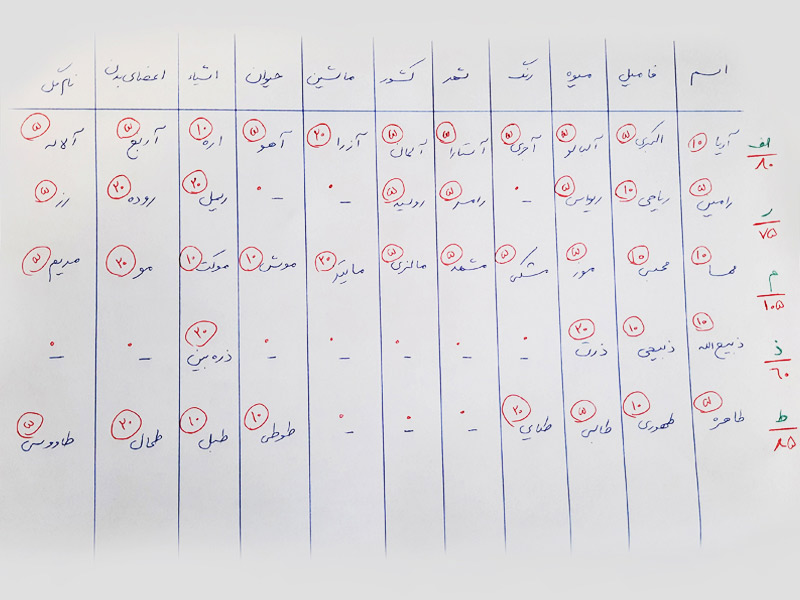 اسم فامیل میوه رنگ شهر کشور ماشین حیوان اشیاء اعضای بدن نام گل
الف ۸۰ آریا ۱۰ اکبری ۵ آلبالو ۵ آجری ۵ آستارا ۵ آلمان ۵ آزرا ۲۰ آهو ۵ اره ۱۰ آرنج ۵ آلاله ۵
ر ۷۵ رامین ۵ ریاحی ۱۰ ریواس ۵ - ۰ رامسر ۵ روسیه ۵ - ۰ - ۰ ریل ۲۰ روده ۲۰ رز ۵
م ۱۰۵ مهسا ۱۰ محبی ۱۰ موز ۵ مشکی ۵ مشهد ۵ مالزی ۵ مایلر ۲۰ موش ۱۰ موکت ۱۰ مو ۲۰ مریم ۵
ذ ۶۰ ذبیح الله ۱۰ ذبیحی ۱۰ ذرت ۲۰ - ۰ - ۰ - ۰ - ۰ - ۰ ذره بین ۲۰ - ۰ - ۰
ط ۸۵ طاهره ۵ طهوری ۱۰ طالبی ۵ طلایی ۲۰ - ۰ - ۰ - ۰ طوطی ۱۰ طبل ۱۰ طحال ۲۰ طاووسی ۵